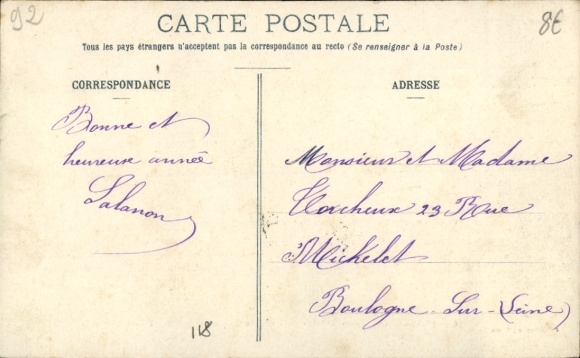 92
8€
CARTE POSTALE
Tous les pays étrangers n'acceptent pas la correspondance au recto (Se renseigner à la Poste)
CORRESPONDANCE
Bonne et
heureuse année
Lalanon
118
ADRESSE
Monsieur et Madame
23 Rue
Michelet
Boulogne-Sur-(Seine)